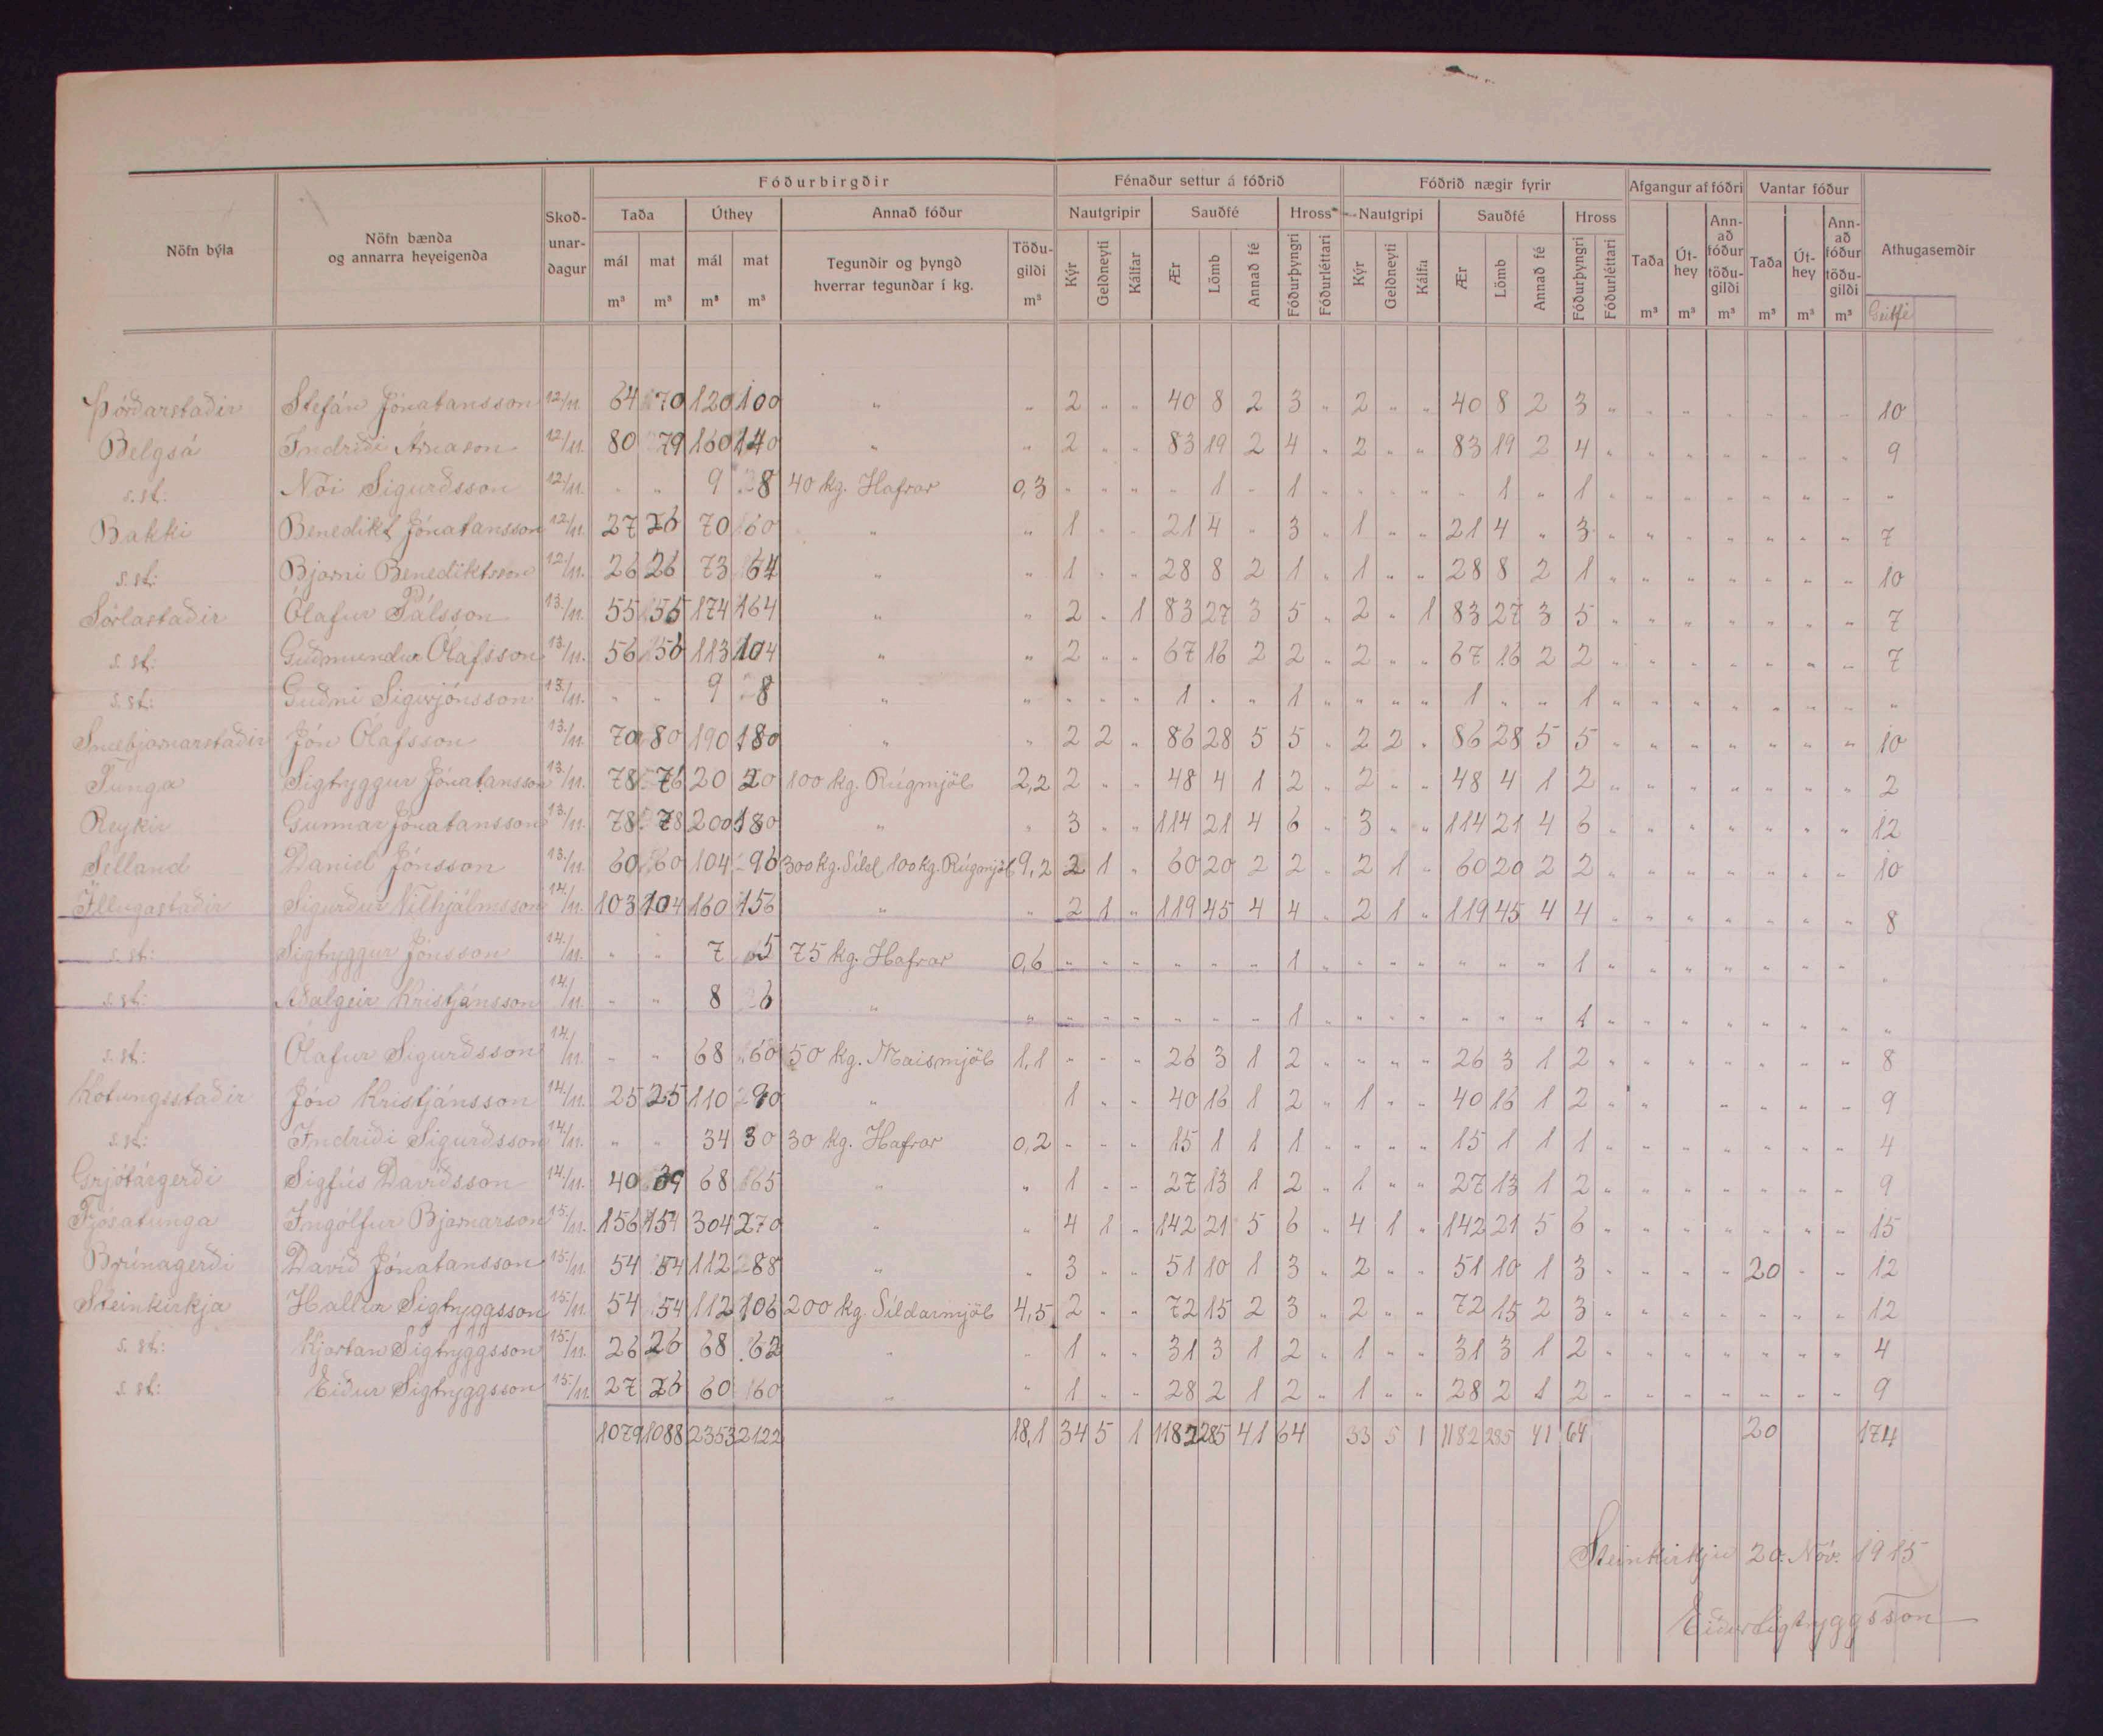 Fóðurbirgðir Fénaður settur á fóðrið Fóðrið nægir fyrir Afgangur af fóðri Vantar fóður
Nöfn býla Nöfn bænda og annarra heyeigenda Skoðunardagur Taða Úthey Annað fóður Nautgripir Sauðfé Hross Nautgripi Sauðfé Hross Taða Úthey Annað fóður töðugildi Taða Úthey Annað fóður töðugildi Athugasemdir
mál mat mál mat Tegundir og þyngd hverrar tegundar í kg. Töðugildi Kýr Geldneyti Kálfar Ær Lömb Annað fé Fóðurþyngri Fóðurléttari Kýr Geldneyti Kálfa Ær Lömb Annað fé Fóðurþyngri Fóðurléttari
m³ m³ m³ m³ m³ m³ m³ m³ m³ m³ m³ Geitfé
Þórðarstaðir Stefán Jónatansson 12/11. 64 70 120 100 " " 2 " " 40 8 2 3 " 2 " " 40 8 2 3 " " " " " " " 10
Belgsá Indriði Árnason 12/11. 80 79 160 140 " " 2 " " 83 19 2 4 " 2 " " 83 19 2 4 " " " " " " " 9
s. st. Nói Sigurðsson 12/11. " " 9 8 40 kg. Hafrar 0,3 " " " " 1 " 1 " " " " " 1 " 1 " " " " " " " "
Bakki Benedikt Jónatansson 12/11. 27 26 70 60 " " 1 " " 21 4 " 3 " 1 " " 21 4 " 3 " " " " " " " 7
s. st: Bjarni Benediktsson 12/11. 26 26 73 64 " " 1 " " 28 8 2 1 " 1 " " 28 8 2 1 " " " " " " " 10
Sörlastaðir Ólafur Pálsson 13./11. 55 55 174 164 " " 2 " 1 83 27 3 5 " 2 " 1 83 27 3 5 " " " " " " " 7
s. st: Guðmundur Ólafsson 13./11. 56 56 113 104 " " 2 " " 67 16 2 2 " 2 " " 67 16 2 2 " " " " " " " 7
s. st: Guðni Sigurjónsson 13./11. " " 9 8 " " " " " 1 " " 1 " " " " 1 " " 1 " " " " " " " "
Snæbjarnarstaðir Jón Ólafsson 13./11. 70 80 190 180 " " 2 2 " 86 28 5 5 " 2 2 " 86 28 5 5 " " " " " " " 10
Tunga Sigtryggur Jónatansson 13./11. 78 76 20 20 100 kg. Rúgmjöl 2,2 2 " " 48 4 1 2 " 2 " " 48 4 1 2 " " " " " " " 2
Reykir Gunnar Jónatansson 13./11. 78 78 200 180 " " 3 " " 114 21 4 6 " 3 " " 114 21 4 6 " " " " " " " 12
Selland Daníel Jónsson 13./11. 60 60 104 96 300 kg. Síld 100 kg. Rúgmjöl 9,2 2 1 " 60 20 2 2 " 2 1 " 60 20 2 2 " " " " " " " 10
Illugastaðir Sigurður Vilhjálmsson 14./11. 103 104 160 156 " " 2 1 " 119 45 4 4 " 2 1 " 119 45 4 4 " " " " " " " 8
s. st: Sigtryggur Jónsson 14./11. " " 7 5 75 kg. Hafrar 0,6 " " " " " " 1 " " " " " " " 1 " " " " " " " "
s. st: Aðalgeir Kristjánsson 14./11. " " 8 6 " " " " " " " " 1 " " " " " " " 1 " " " " " " " "
s. st: Ólafur Sigurðsson 14./11. " " 68 60 50 kg. Maismjöl 1,1 " " " 26 3 1 2 " " " " 26 3 1 2 " " " " " " " 8
Kotungsstaðir Jón Kristjánsson 14./11. 25 25 110 90 " 1 " " 40 16 1 2 " 1 " " 40 16 1 2 " " " " " " 9
s. st: Indriði Sigurðsson 14./11. " " 34 30 30 kg. Hafrar 0,2 " " " 15 1 1 1 " " " " 15 1 1 1 " " " " " " " 4
Grjótárgerði Sigfús Davíðsson 14./11. 40 39 68 65 " " 1 " " 27 13 1 2 " 1 " " 27 13 1 2 " " " " " " " 9
Fjósatunga Ingólfur Bjarnarson 15./11. 156 154 304 270 " " 4 1 " 142 21 5 6 " 4 1 " 142 21 5 6 " " " " " " " 15
Brúnagerði Davíð Jónatansson 15./11. 54 54 112 88 " " 3 " " 51 10 1 3 " 2 " " 51 10 1 3 " " " " 20 " " 12
Steinkirkja Hallur Sigtryggsson 15./11. 54 54 112 106 200 kg. Síldarmjöl 4,5 2 " " 72 15 2 3 " 2 " " 72 15 2 3 " " " " " " " 12
s. st: Kjartan Sigtryggsson 15./11. 26 26 68 62 " " 1 " " 31 3 1 2 " 1 " " 31 3 1 2 " " " " " " " 4
s. st: Eiður Sigtryggsson 15./11. 27 26 60 60 " " 1 " " 28 2 1 2 " 1 " " 28 2 1 2 " " " " " " " 9
1079 1088 2353 2122 18,1 34 5 1 1182 285 41 64 33 5 1 1182 285 41 64 20 174
Steinkirkju 20. Nóv. 1915
Eiður Sigtryggsson